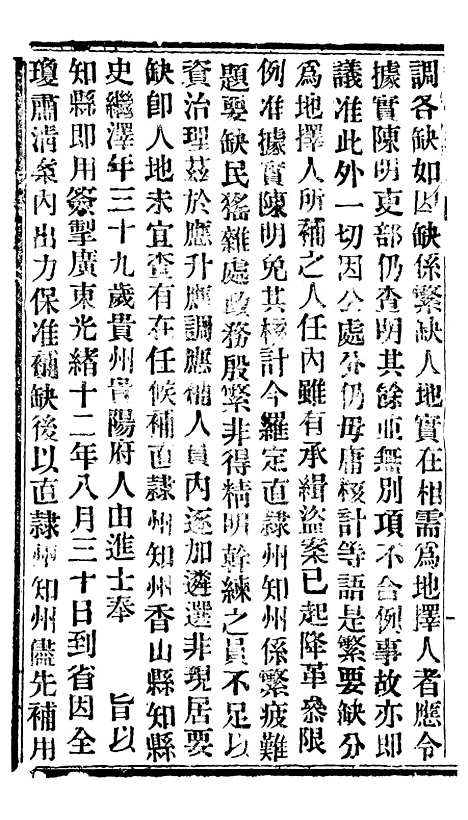 調各缺如因缺係繁缺人地實在相需爲地擇人者應令
據實陳明吏部仍查明其餘並無別項不合例事故亦即
議准此外一切因公處分仍毋庸核計等語是繁要缺分
爲地擇人所補之人任內雖有承緝盜案已起降革參限
例准據實陳明免其核計今羅定直隸州知州係繁疲難
題要缺民猺雜處政務殷繁非得精明幹練之員不足以
資治理茲於應升應調應補人員內逐加遴選非現居要
缺卽人地未宜查有在任候補直隸州知州香山縣知縣
史繼澤年三十九歲貴州貴陽府人由進士奉　　旨以
知縣即用簽掣廣東光緒十二年八月三十日到省因全
瓊肅清案內出力保准補缺後以直隸州知州儘先補用